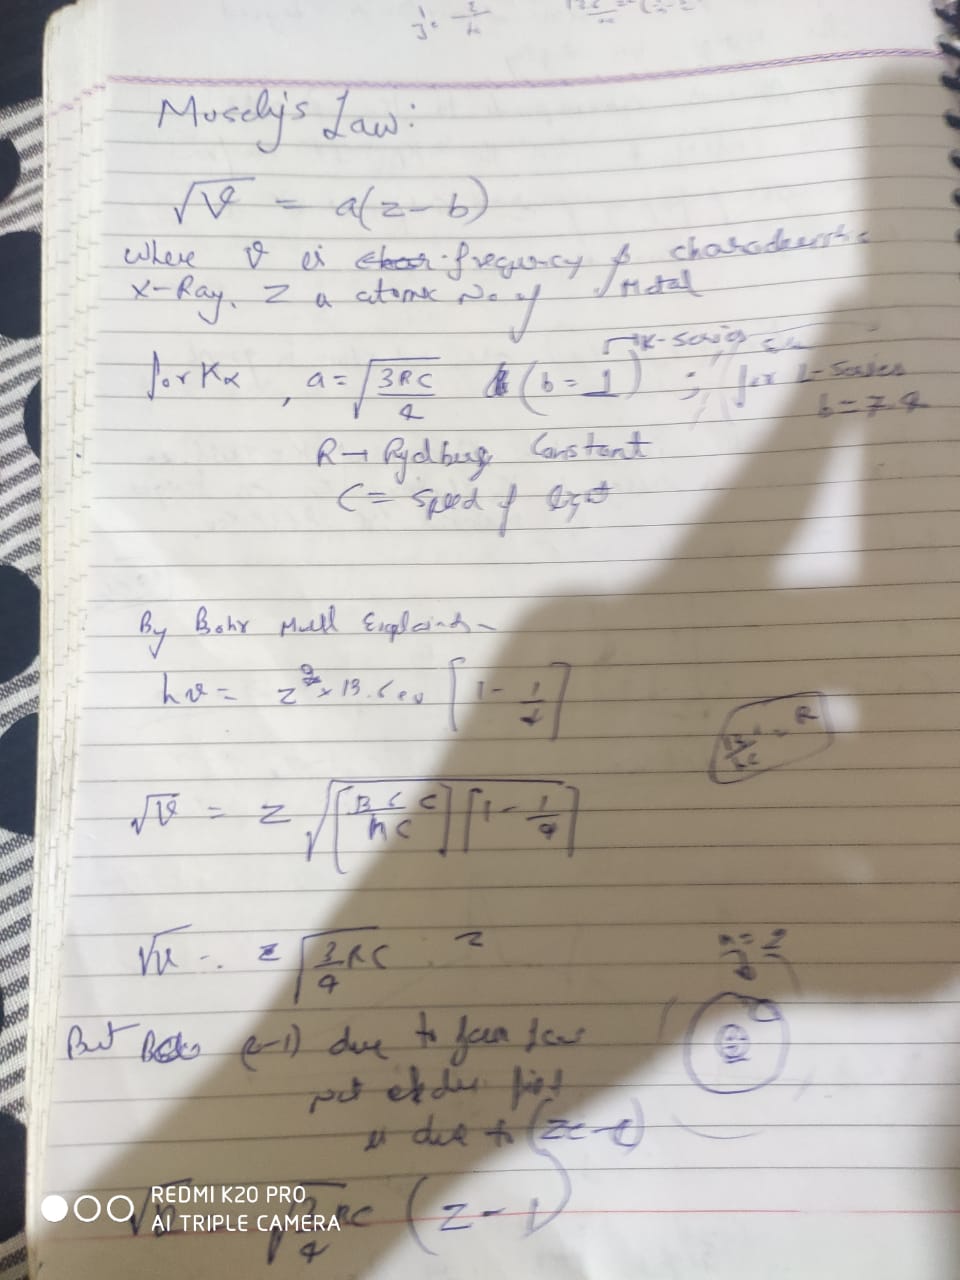 Mosely's Law:
√ν = a(z-b)
where ν is frequency of characteristic
X-Ray. Z is atomic No of Metal
for Kα, a = √3RC/4 (b=1) → K-series ; for L-series
b = 7.4
R → Rydberg Constant
C = Speed of light
By Bohr
hν = z² × 13.6 ev [1 - 1/4]
13.6/hc = R
√ν = z √[13.6 C/hC] [1 - 1/4]
√ν = z √3/4 RC
n=2
But (z-1) due to
is due to (ze-e)
√ν √3/4 RC (z-1)
REDMI K20 PRO
AI TRIPLE CAMERA